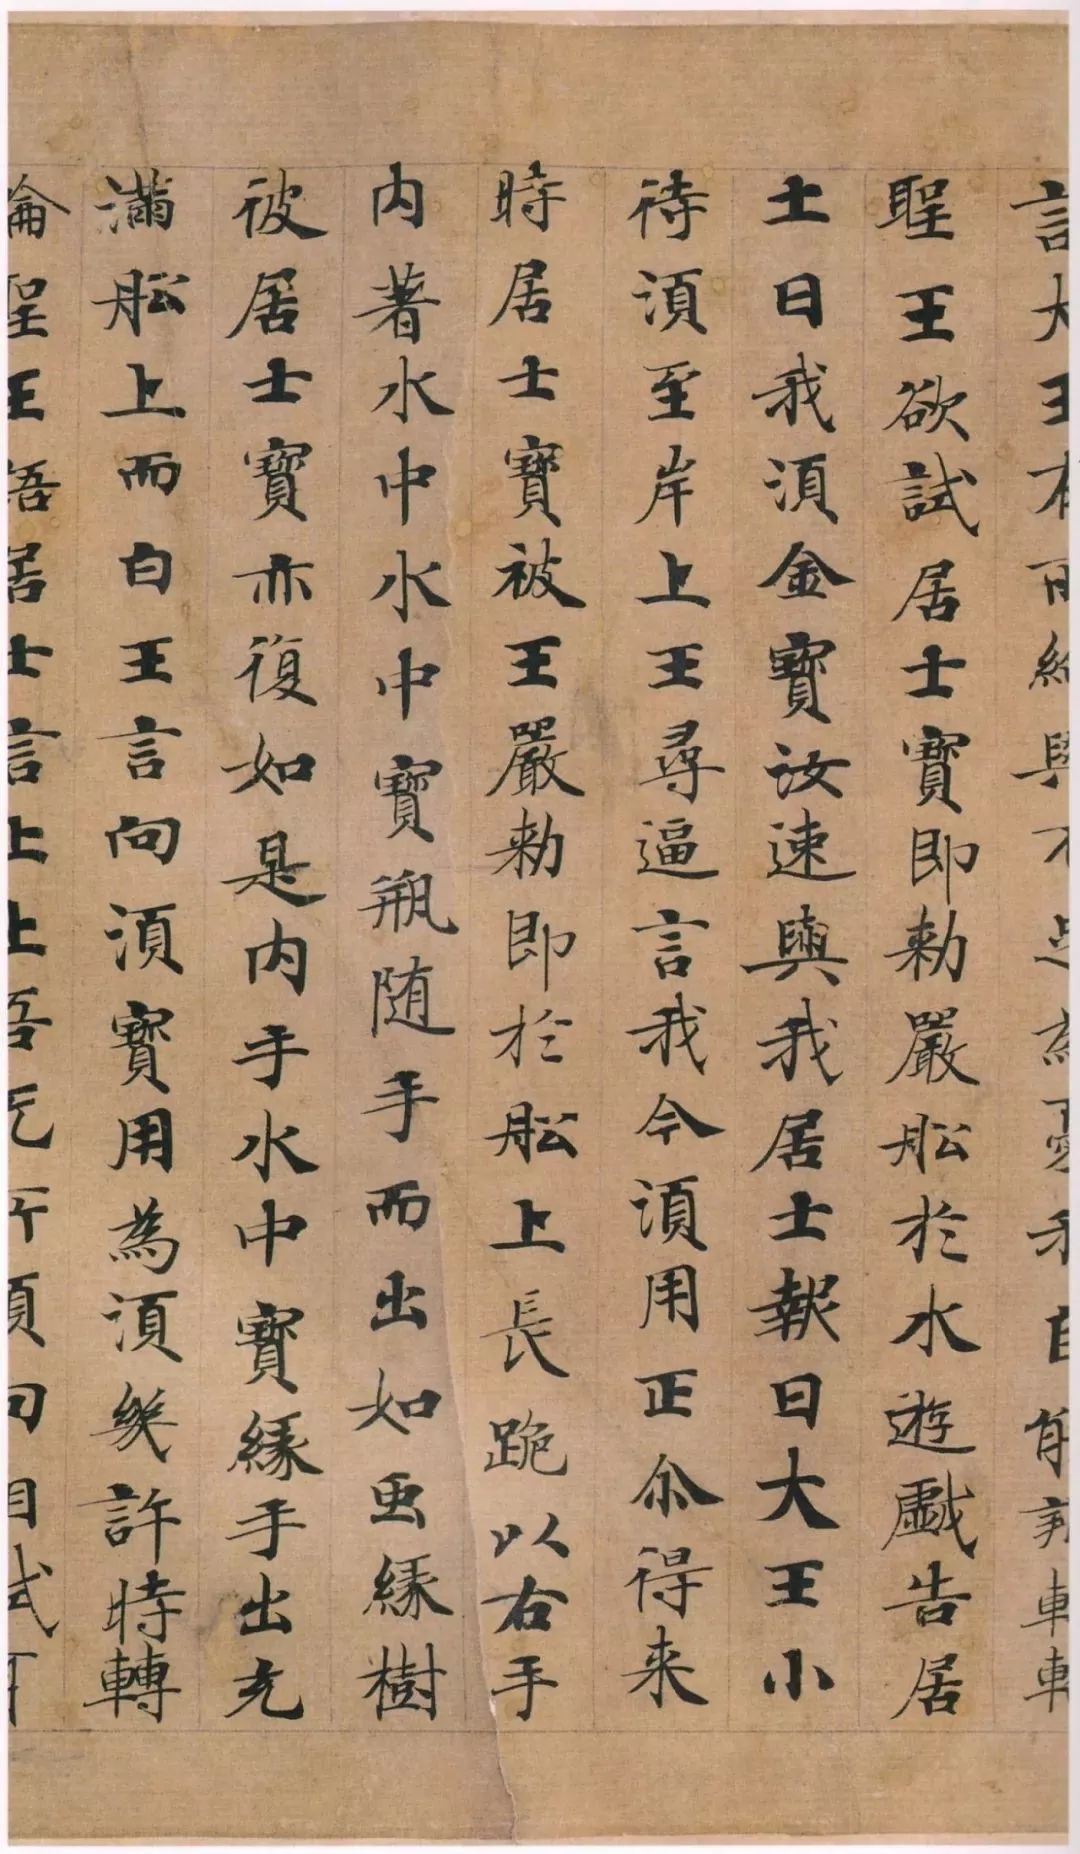 言大王有所給與不足為憂我自能辦時轉輪
聖王欲試居士寶即勅嚴舩於水遊戲告居
士曰我須金寶汝速與我居士報曰大王小
待須至岸上王尋逼言我今須用正尒得来
時居士寶被王嚴勅即於舩上長跪以右手
内著水中水中寶瓶随手而出如虫緣樹
彼居士寶亦復如是内手水中寶緣手出充
滿舩上而白王言向須寶用為須幾許時轉
輪聖王語居士言止止吾无所須向相試耳